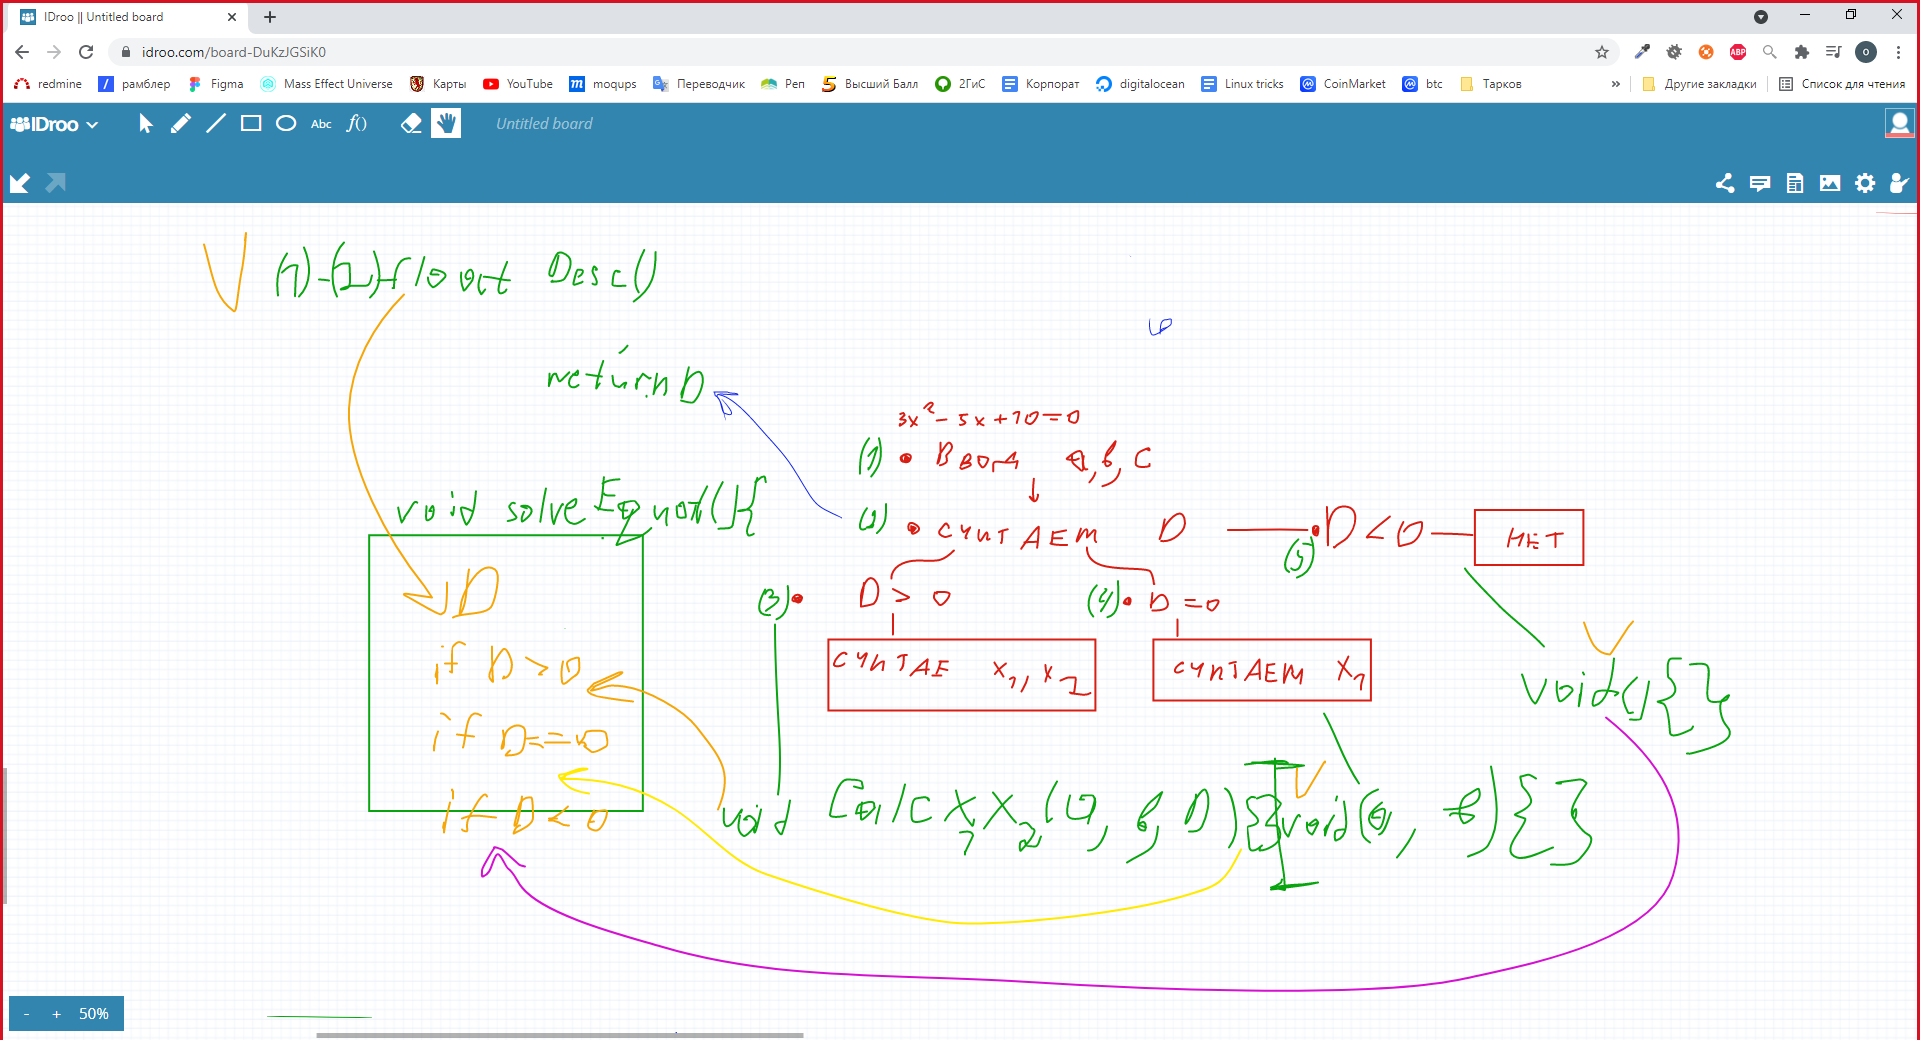 IDroo || Untitled board
idroo.com/board-DuKzJGSiK0
ABP
O
redmine
рамблер
Figma
Mass Effect Universe
Карты
YouTube
moqups
Переводчик
Реп
Высший Балл
2ГиС
Корпорат
digitalocean
Linux tricks
CoinMarket
btc
Тарков
»
Другие закладки
Список для чтения
IDroo
Abc
f()
Untitled board
(1)-(2) float Desc()
return D
3x² - 5x + 10 = 0
(1) • Ввод a, b, c
void solveEquat(){
(2) • СЧИТАЕМ D
(5) • D < 0
НЕТ
D
(3) • D > 0
(4) • D = 0
if D > 0
СЧИТАЕ x1, x2
СЧИТАЕМ X1
void(){}
if D == 0
if D < 0
void CalcX1X2(a, b, D){}
void(a, b){}
- + 50%